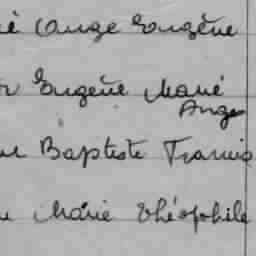 Ange Eugène
Eugène Marie
Ange
Baptiste Francis
Marie Théophile